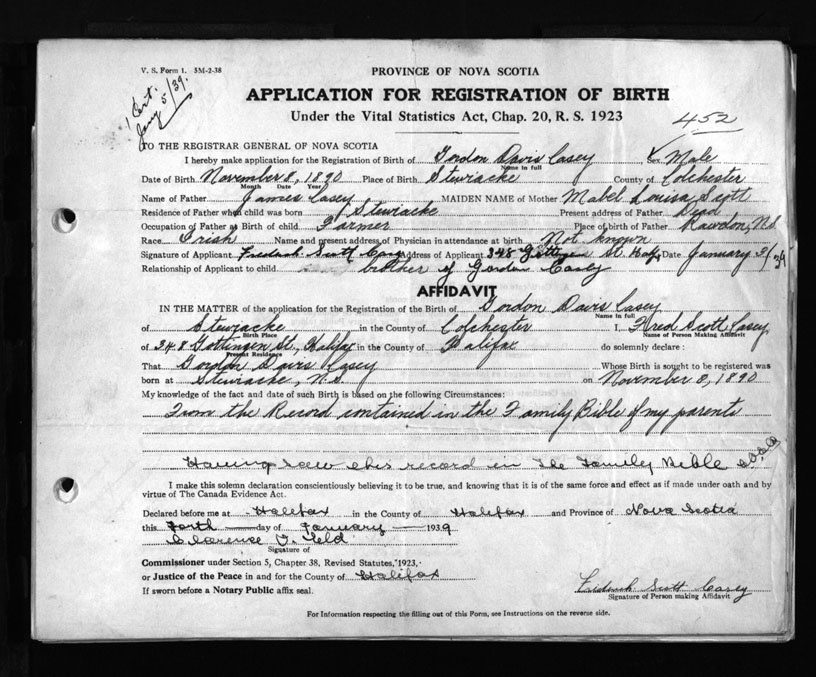 V. S. Form 1. 5M-2-38
1 Cert.
Jany 5/39.
PROVINCE OF NOVA SCOTIA
APPLICATION FOR REGISTRATION OF BIRTH
Under the Vital Statistics Act, Chap. 20, R. S. 1923
452
TO THE REGISTRAR GENERAL OF NOVA SCOTIA
I hereby make application for the Registration of Birth of Gordon Davis Casey Sex Male
Name in full
Date of Birth November 8, 1890 Place of Birth Stewiacke County of Colchester
Month Date Year
Name of Father James Casey MAIDEN NAME of Mother Mabel Louisa Scott
Residence of Father when child was born Stewiacke Present address of Father Dead
Occupation of Father at Birth of child Farmer Place of birth of Father Rawdon, N.S.
Race Irish Name and present address of Physician in attendance at birth Not known
Signature of Applicant Fredrick Scott Casey Address of Applicant 248 Gottingen St. Hafx Date January 3/39
Relationship of Applicant to child brother of Gordon Casey
AFFIDAVIT
IN THE MATTER of the application for the Registration of the Birth of Gordon Davis Casey
Name in full
of Stewiacke in the County of Colchester I, Fred Scott Casey
Birth Place Name of Person Making Affidavit
of 248 Gottingen St., Halifax in the County of Halifax do solemnly declare:
Present Residence
That Gordon Davis Casey Whose Birth is sought to be registered was
born at Stewiacke, N.S. on November 8, 1890
My knowledge of the fact and date of such Birth is based on the following Circumstances:
From the Record contained in the Family Bible of my parents
Having saw this record in the Family Bible
I make this solemn declaration conscientiously believing it to be true, and knowing that it is of the same force and effect as if made under oath and by
virtue of The Canada Evidence Act.
Declared before me at Halifax in the County of Halifax and Province of Nova Scotia
this Forth day of January 1939
Clarence V.
Signature of
Commissioner under Section 5, Chapter 38, Revised Statutes, 1923,
or Justice of the Peace in and for the County of Halifax
If sworn before a Notary Public affix seal.
Fredrick Scott Casey
Signature of Person making Affidavit
For Information respecting the filling out of this Form, see Instructions on the reverse side.